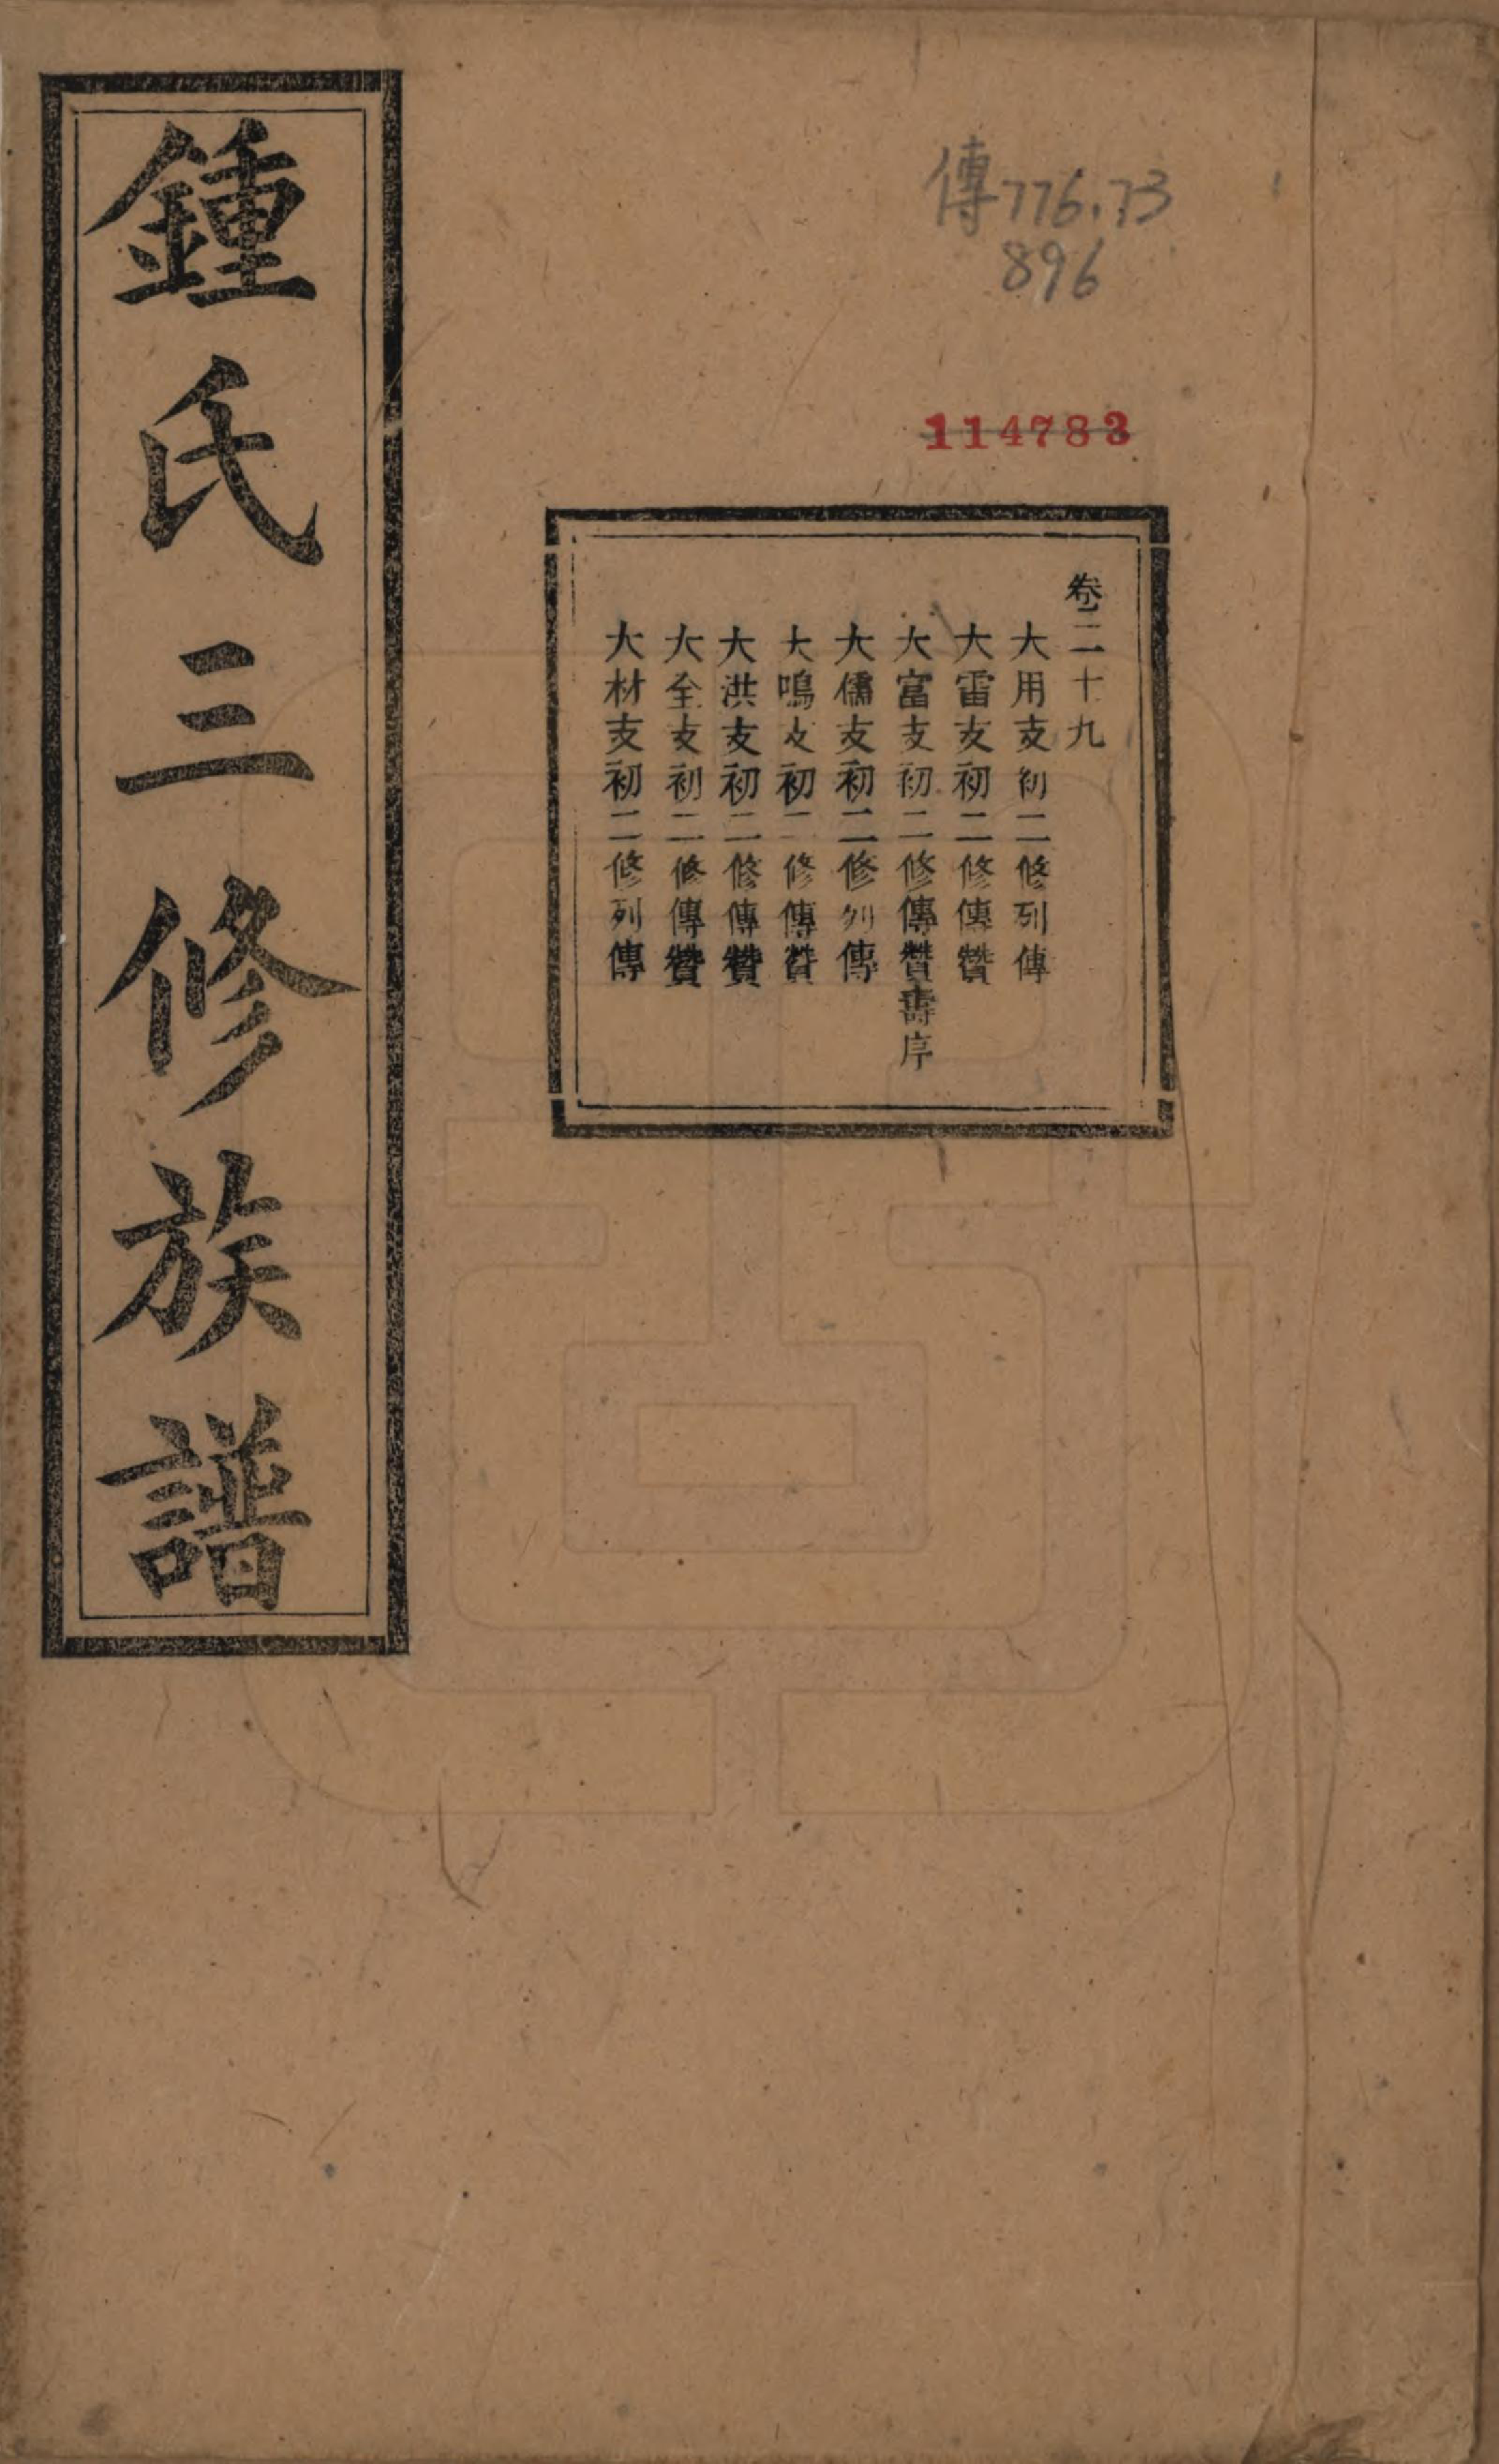 鍾氏三修族譜
傳776.73
896
114783
卷二十九
大用支初二修列傳
大雷支初二修傳贊
大富支初二修傳贊壽序
大儒支初二修列傳
大鳴支初二修傳贊
大洪支初二修傳贊
大全支初二修傳贊
大材支初二修列傳